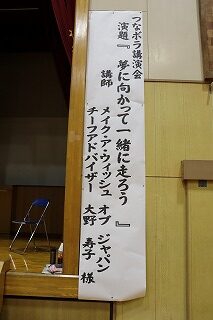 つなボラ講演会
演題『 夢に向かって一緒に走ろう 』
講師
メイク・ア・ウィッシュ オブ ジャパン
チーフアドバイザー 大野 寿子 様